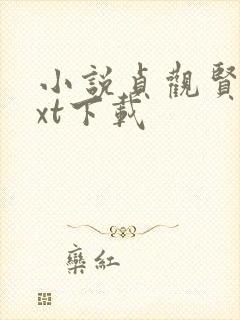 小說貞觀賢
xt下載
欒紅